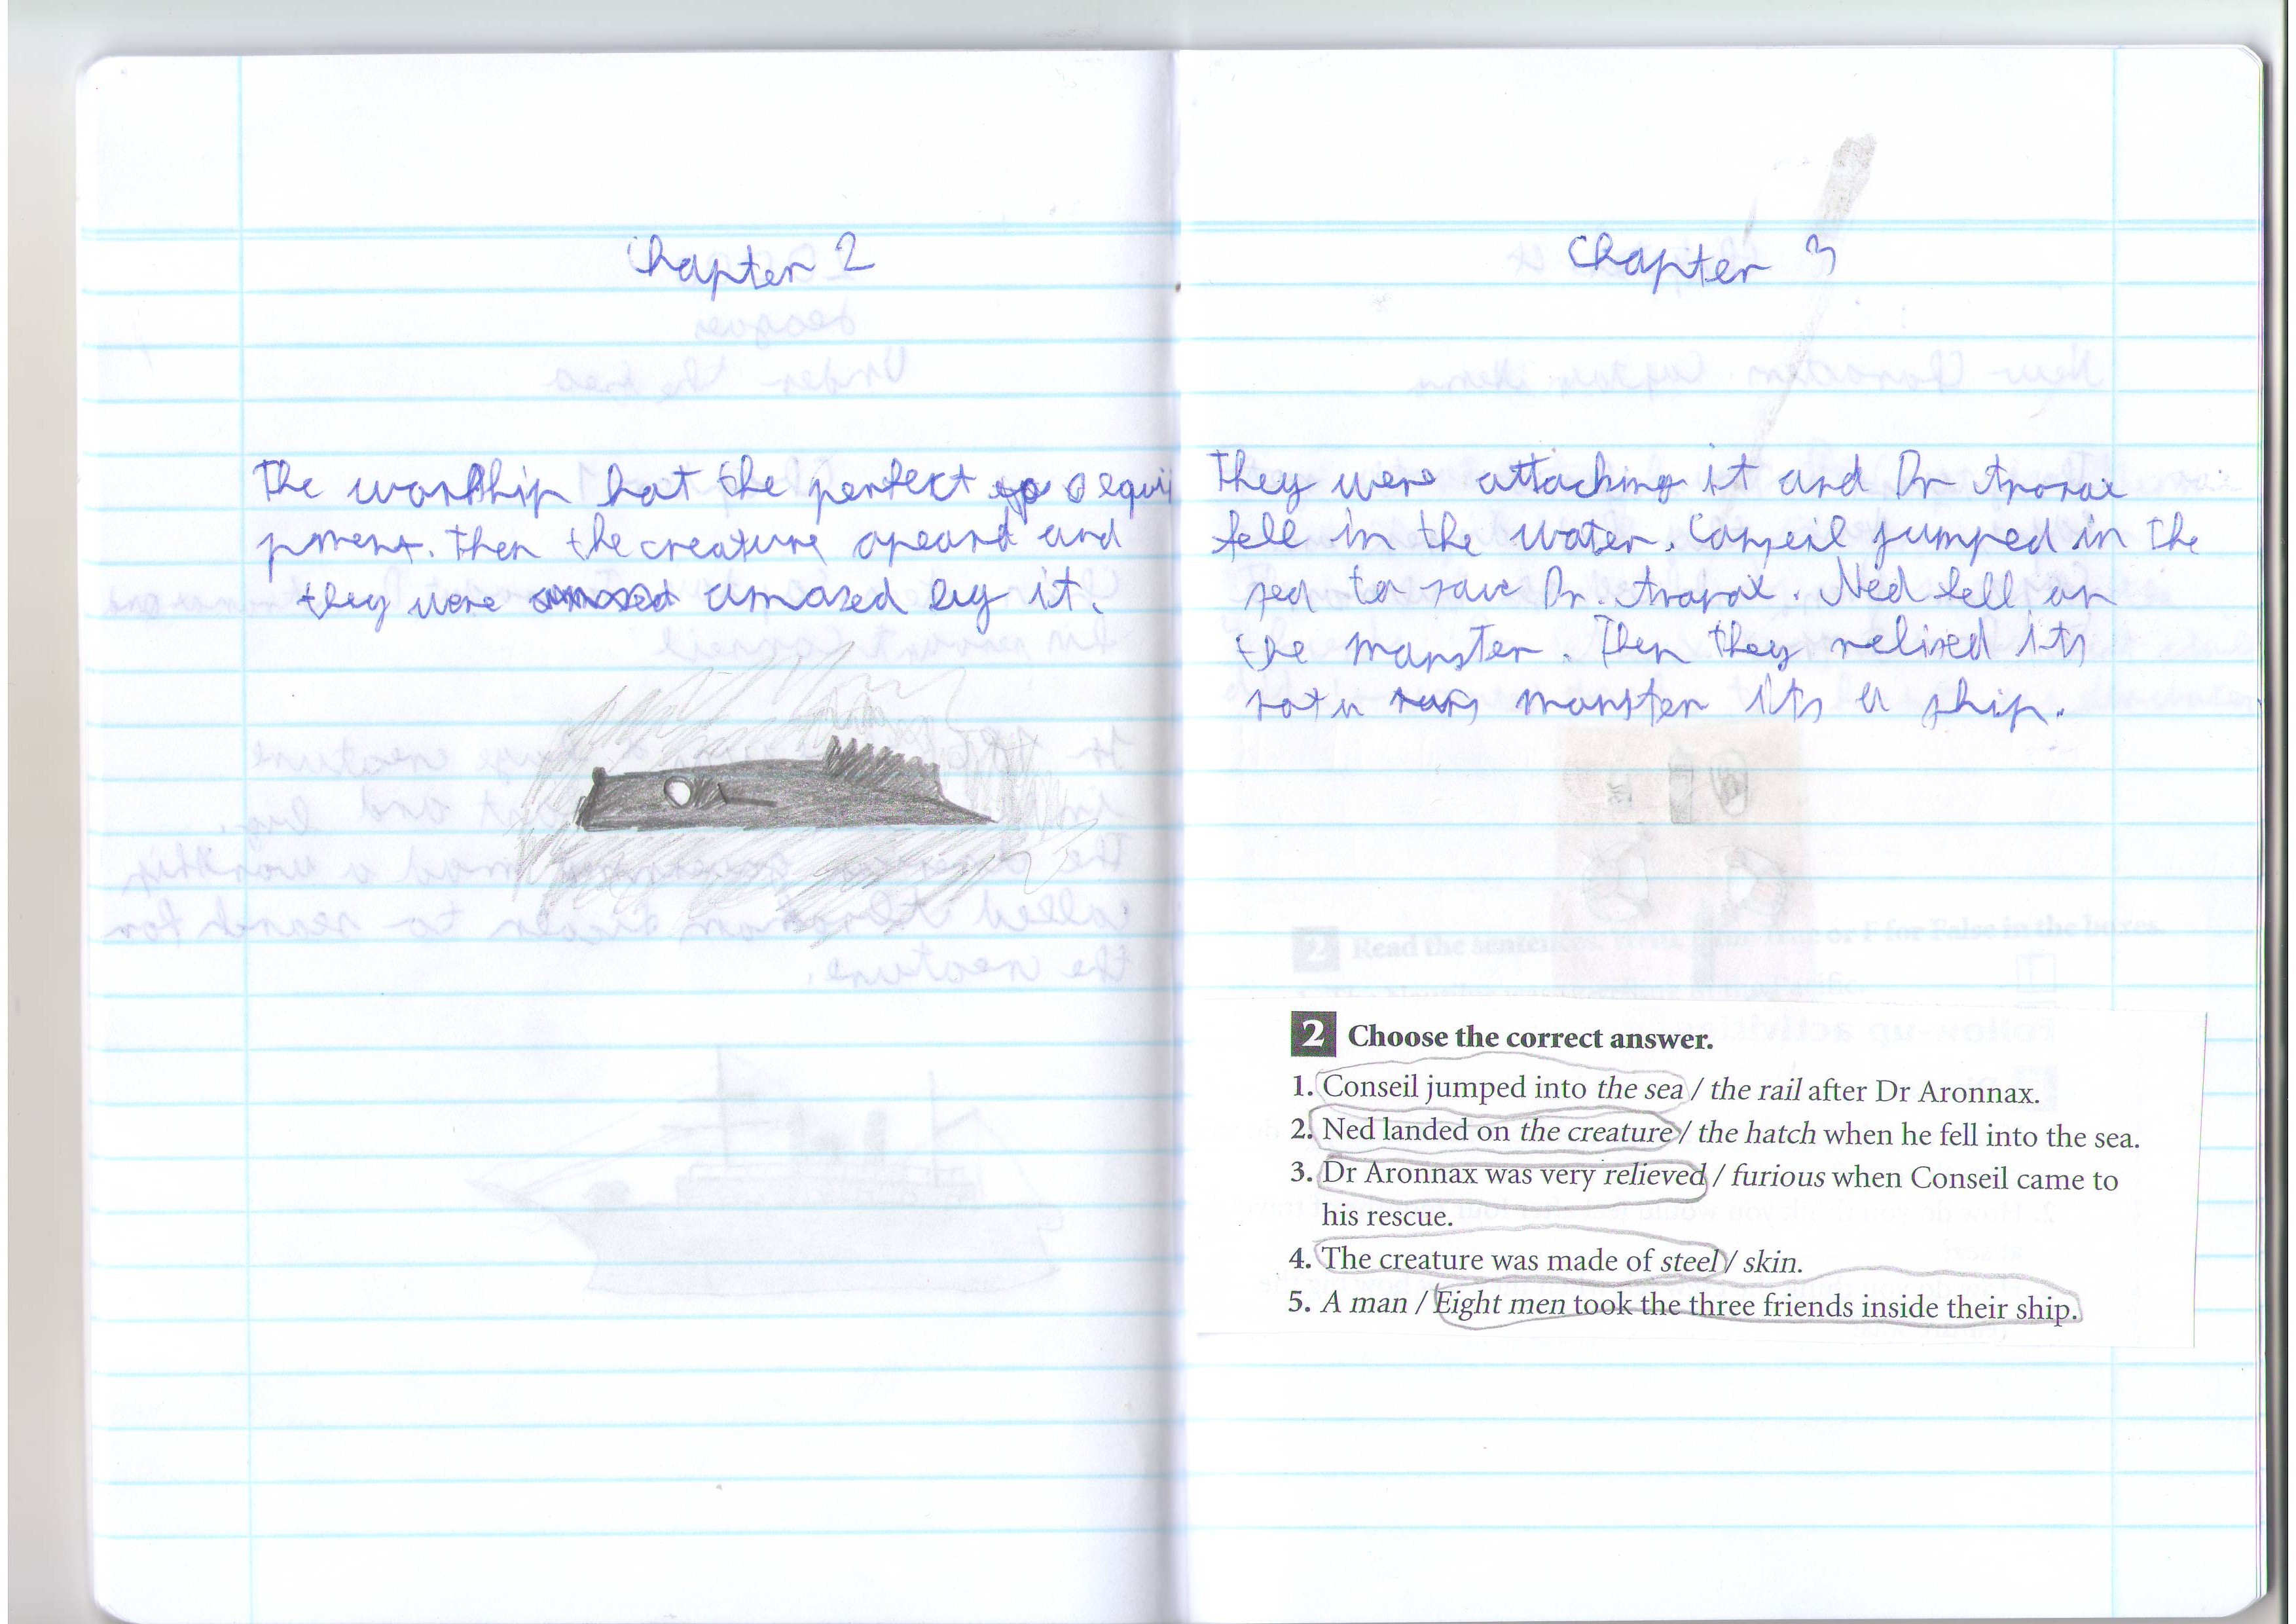 Chapter 2
The warship hat the perfect equi
pment. Then the creature apeard and
they were amazed by it.
Chapter 3
They were attacking it and Dr Aronax
fell in the water. Conseil jumped in the
sea to save Dr. Aronax. Ned fell on
the monster. Then they relised its
not a monster its a ship.
2 Choose the correct answer.
1. Conseil jumped into the sea / the rail after Dr Aronnax.
2. Ned landed on the creature / the hatch when he fell into the sea.
3. Dr Aronnax was very relieved / furious when Conseil came to
his rescue.
4. The creature was made of steel / skin.
5. A man / Eight men took the three friends inside their ship.